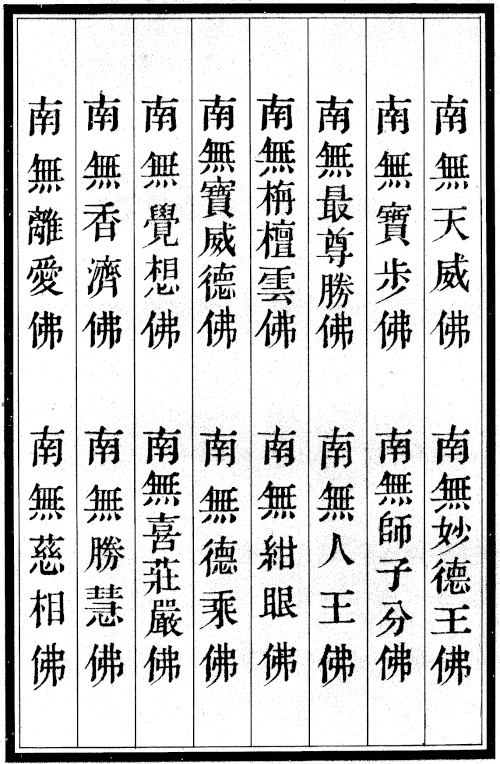 南無天威佛 南無妙德王佛
南無寶步佛 南無師子分佛
南無最尊勝佛 南無人王佛
南無栴檀雲佛 南無紺眼佛
南無寶威德佛 南無德乘佛
南無覺想佛 南無喜莊嚴佛
南無香濟佛 南無勝慧佛
南無離愛佛 南無慈相佛